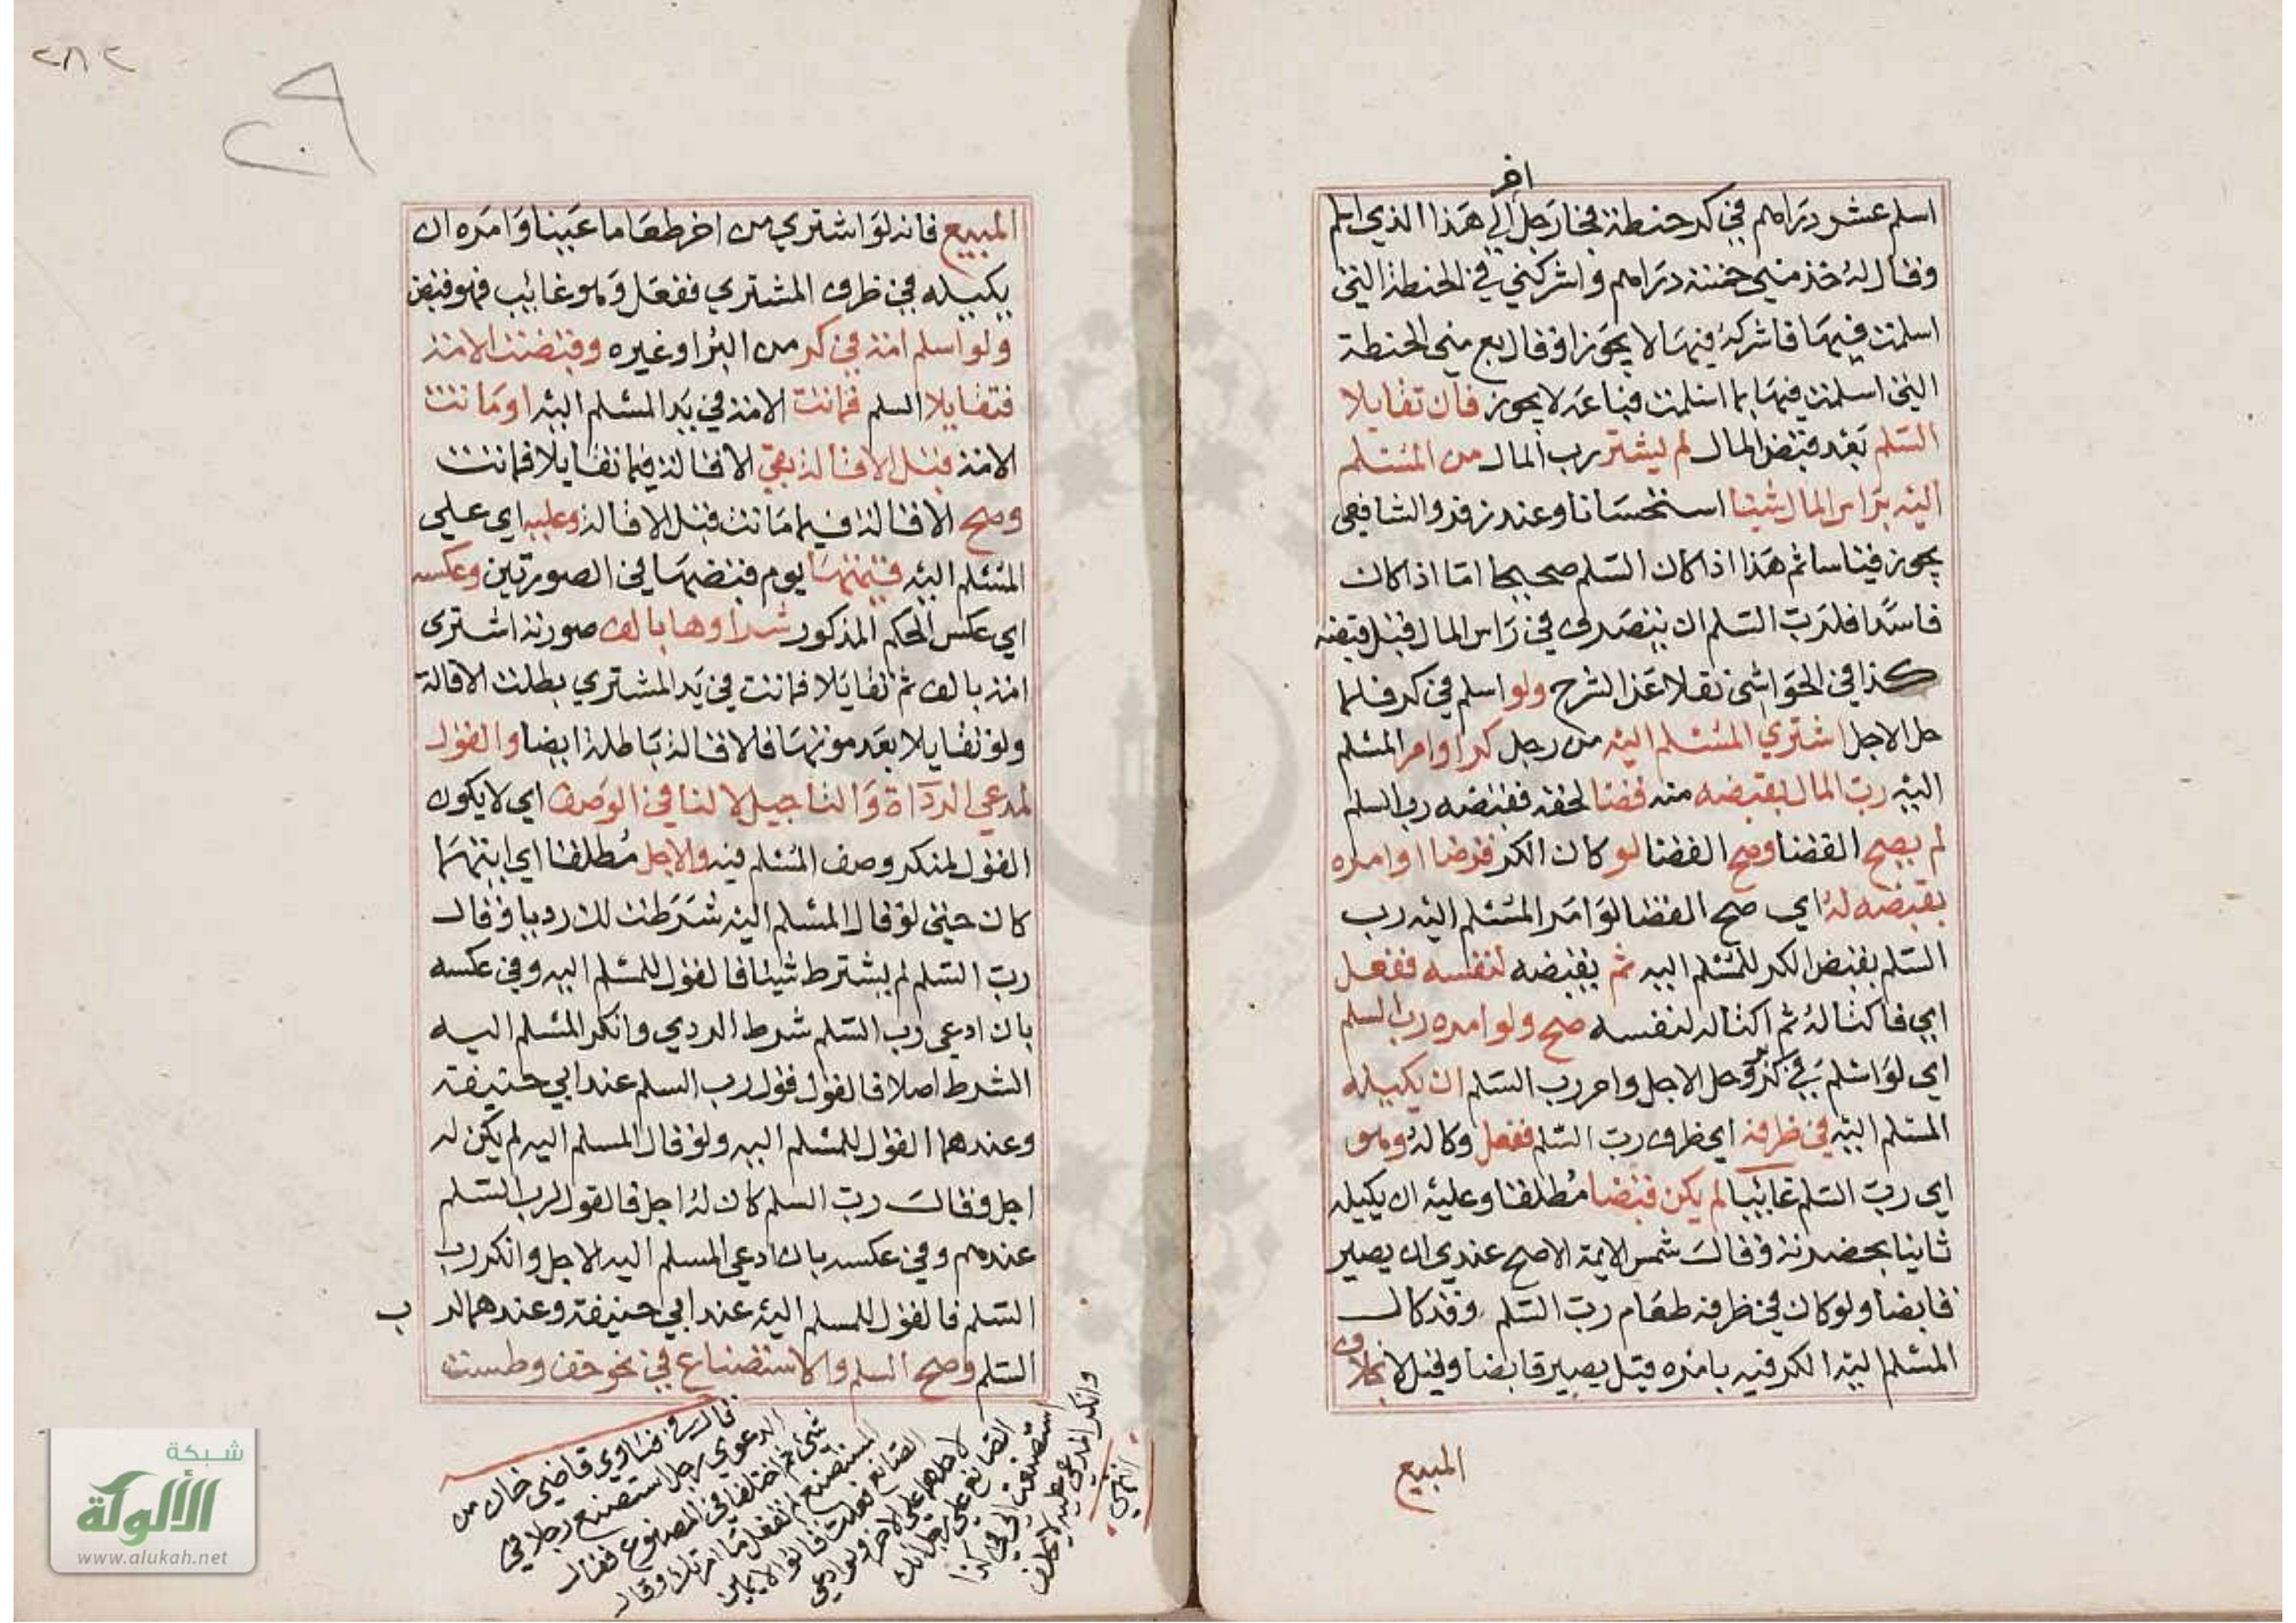 اخر
اسلم عشر دراهم في كر حنطة فجا رجل الي هذا الذي اسلم
وقال له خذ مني خمسة دراهم واشركني في الحنطة التي
اسلمت فيها فاشركه فيها لا يجوز او قال بع مني الحنطة
التي اسلمت فيها بما اسلمت فباعه لا يجوز فان تقايلا
السلم بعد قبض المال لم يشتر رب المال من المسلم
اليه براس المال شيئا استحسانا وعند زفر والشافعي
يجوز قياسا ثم هذا اذا كان السلم صحيحا اما اذا كان
فاسدا فلرب السلم ان يتصرف في راس المال قبل قبضه
كذا في الحواشي نقلا عن الشرح ولو اسلم في كر فلما
حل الاجل اشتري المسلم اليه من رجل كرا وامر المسلم
اليه رب المال بقبضه منه قضا لحقه فقبضه رب السلم
لم يصح القضا وصح القضا لو كان الكر قرضا او امره
بقبضه له اي صح القضا لو امر المسلم اليه رب
السلم بقبض الكر للمسلم اليه ثم يقبضه لنفسه ففعل
اي فاكتاله ثم اكتاله لنفسه صح ولو امره رب السلم
اي لو اسلم في كر وحل الاجل وامر رب السلم ان يكيله
المسلم اليه في ظرفه اي ظرف رب السلم ففعل وكاله وهو
اي رب السلم غائبا لم يكن قبضا مطلقا وعليه ان يكيله
ثانيا بحضرته وقال شمس الايمة الاصح عندي ان يصير
قابضا ولو كان في ظرفه طعام رب السلم وقد كال
المسلم اليه الكر فيه بامره قيل يصير قابضا وقيل لا بخلاف
المبيع
٢٨٢
المبيع فانه لو اشتري من اخر طعاما عينا وامره ان
يكيله في ظرف المشتري ففعل وهو غائب فهو قبض
ولو اسلم امة في كر من البر او غيره وقبضت الامة
فتقايلا السلم فماتت الامة في يد المسلم اليه او ماتت
الامة قبل الاقالة بقي الاقالة فيما تقايلا فماتت
وصح الاقالة فيما ماتت قبل الاقالة وعليه اي علي
المسلم اليه قيمتها يوم قبضها في الصورتين وعكسه
اي عكس الحكم المذكور شراوها بالف صورته اشترى
امة بالف ثم تقايلا فماتت في يد المشتري بطلت الاقالة
ولو تقايلا بعد موتها فالاقالة باطلة ايضا والقول
لمدعي الرداة والتاجيل لا لنافي الوصف اي لا يكون
القول لمنكر وصف المسلم فيه والاجل مطلقا اي ايتهما
كان حتي لو قال المسلم اليه شرطت لك رديا وقال
رب السلم لم يشترط شيئا فالقول للمسلم اليه وفي عكسه
بان ادعي رب السلم شرط الردي وانكر المسلم اليه
الشرط اصلا فالقول قول رب السلم عند ابي حنيفة
وعندهما القول للمسلم اليه ولو قال المسلم اليه لم يكن له
اجل وقال رب السلم كان له اجل فالقول لرب السلم
عندهم وفي عكسه بان ادعي المسلم اليه الاجل وانكر رب
السلم فالقول للمسلم اليه عند ابي حنيفة وعندهما لر ب
السلم وصح السلم والاستصناع في نحو خف وطست
قال في فتاوي قاضي خان من
الدعوي رجل استصنع رجلا في
شيء ثم اختلفا في المصنوع فقال
المستصنع لم تفعل ما امرتك وقال
الصانع فعلت قالوا لا يمين
لاحدهما علي الاخر ولو ادعي
الصانع علي رجل انك
استصنعت الي في كذا
وانكر المدعي عليه لا يحلف
انتهي
شبكة
الألوكة
www.alukah.net